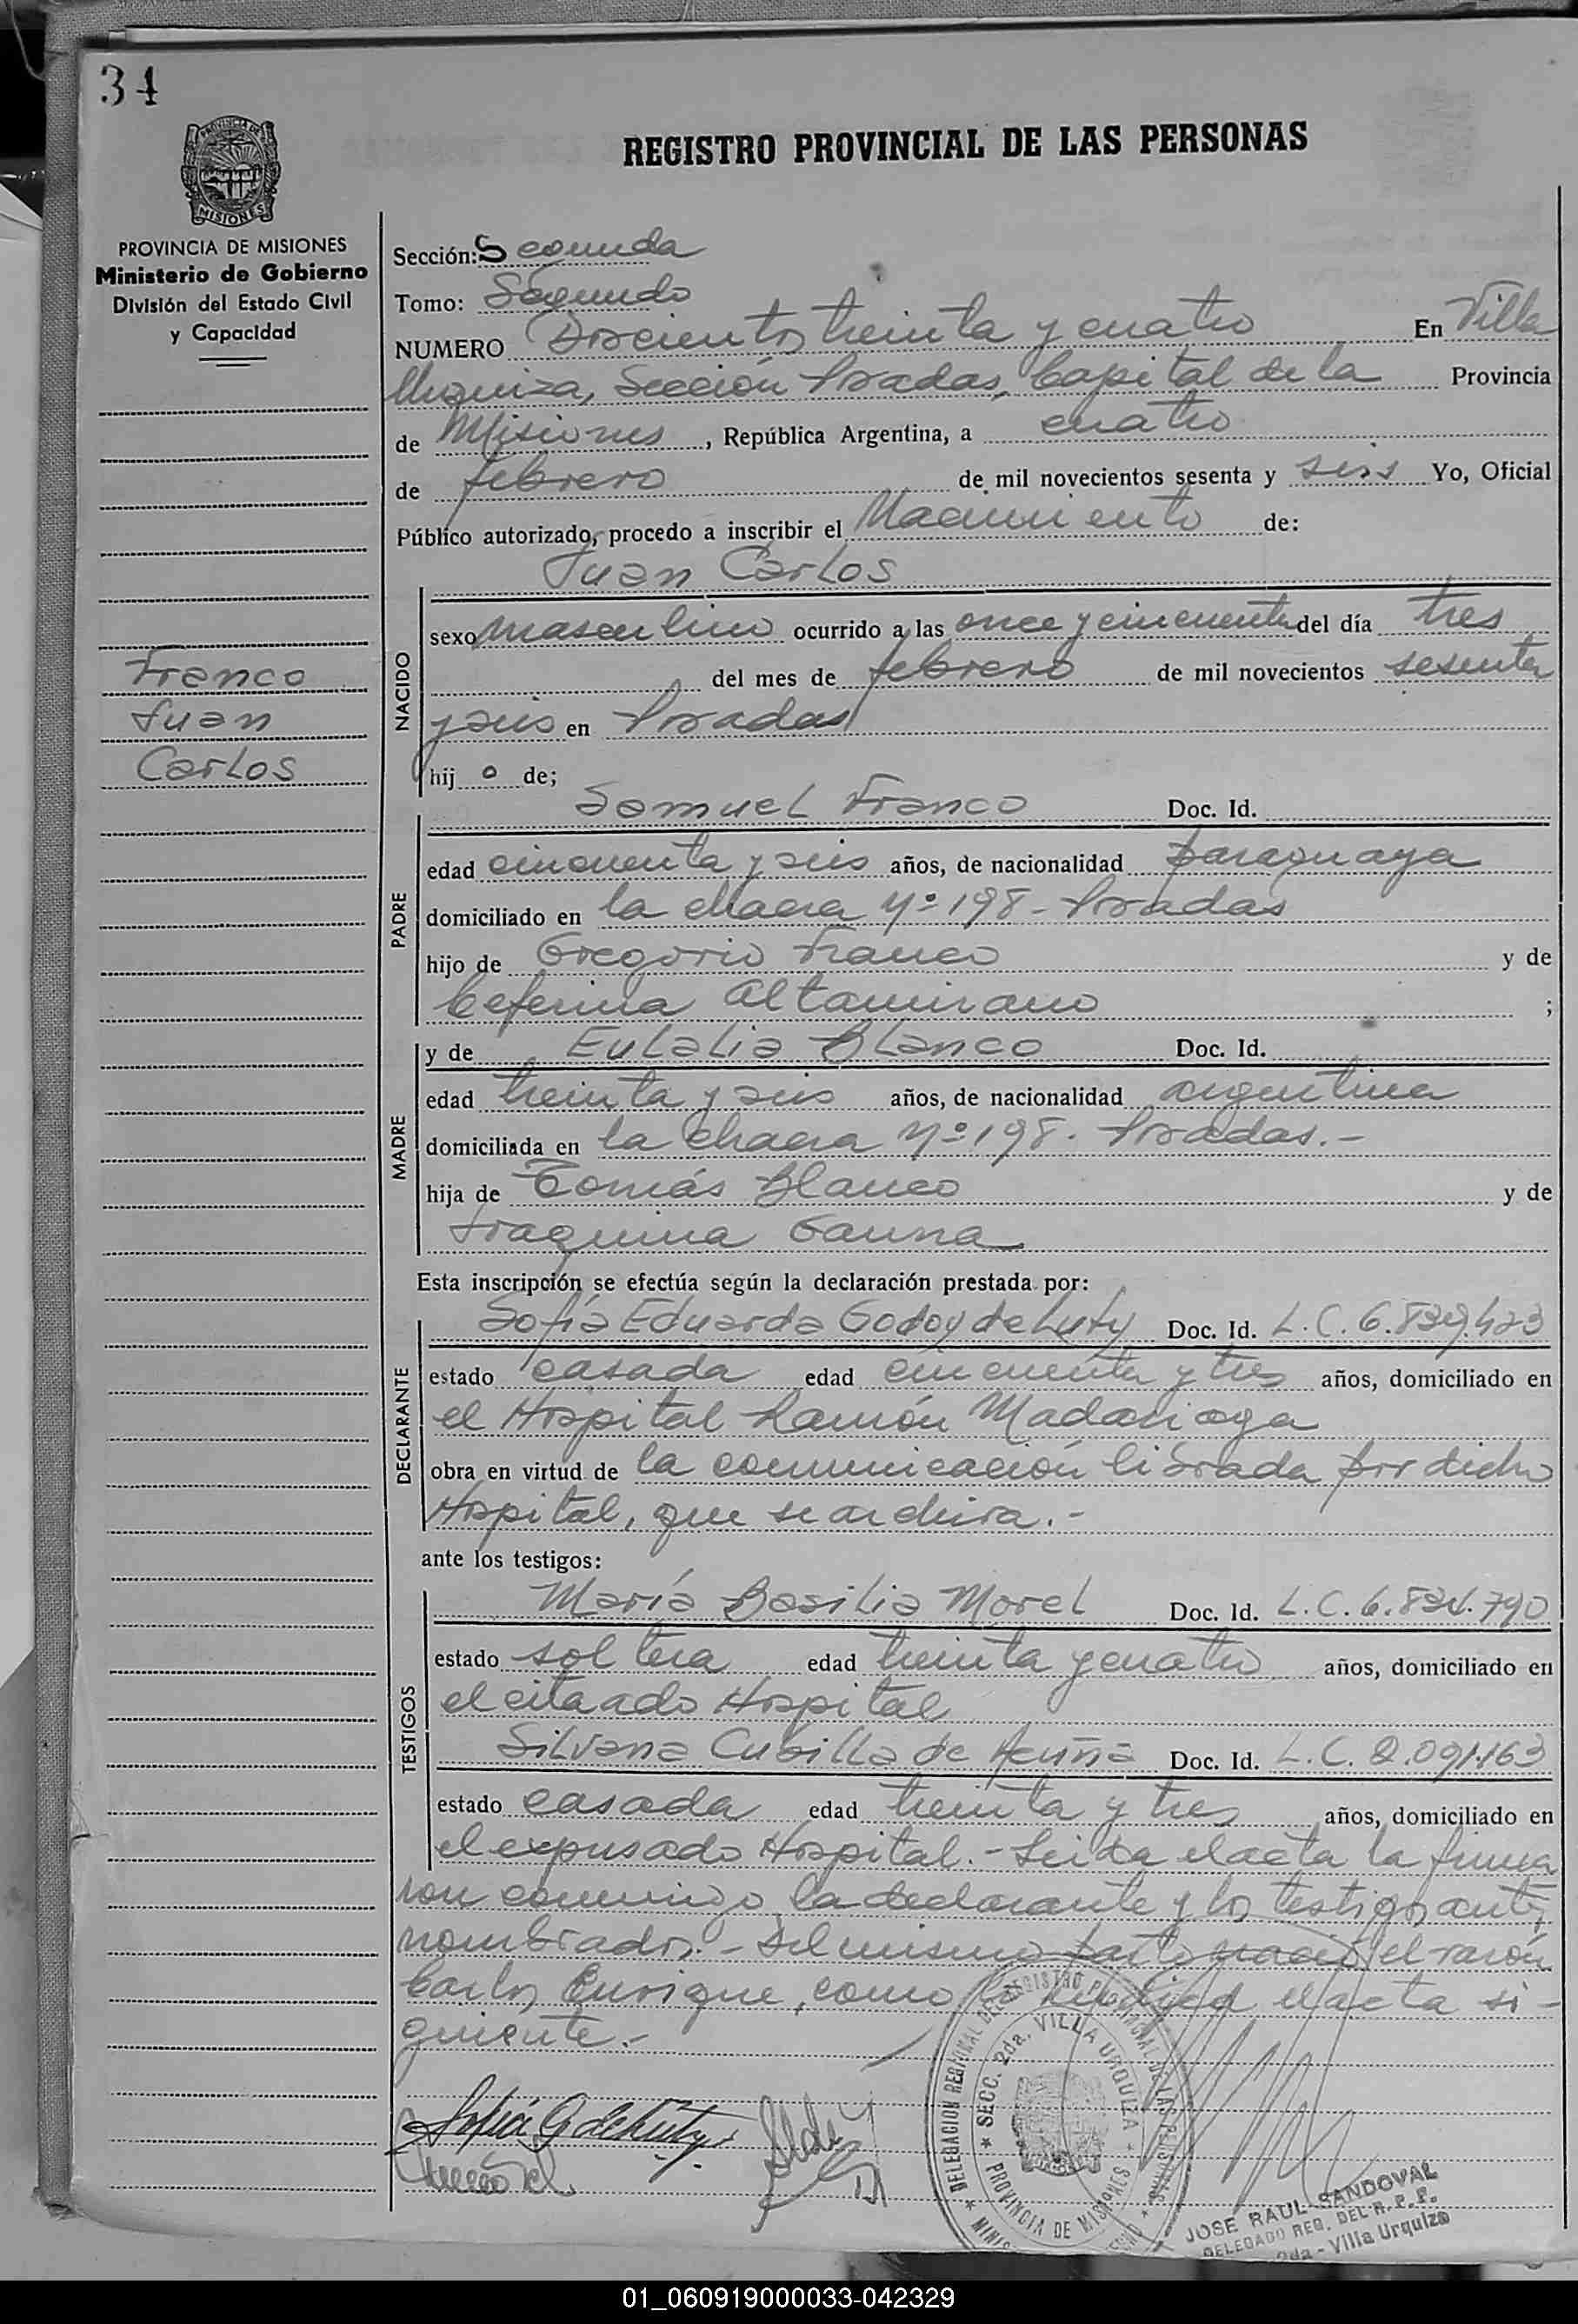 34
REGISTRO PROVINCIAL DE LAS PERSONAS
PROVINCIA DE MISIONES
Ministerio de Gobierno
División del Estado Civil
y Capacidad
Franco
Juan
Carlos
Sección: Segunda
Tomo: Segundo
NUMERO Doscientos treinta y cuatro En Villa
Urquiza, Sección Posadas, Capital de la Provincia
de Misiones, República Argentina, a cuatro
de febrero de mil novecientos sesenta y seis Yo, Oficial
Público autorizado, procedo a inscribir el Nacimiento de:
Juan Carlos
NACIDO
sexo masculino ocurrido a las once y cincuenta del día tres
del mes de febrero de mil novecientos sesenta
y seis en Posadas
hij o de;
Samuel Franco Doc. Id.
PADRE
edad cincuenta y seis años, de nacionalidad paraguaya
domiciliado en la chacra Nº 198 - Posadas
hijo de Gregorio Franco y de
Ceferina Altamirano ;
MADRE
y de Eulalia Blanco Doc. Id.
edad treinta y seis años, de nacionalidad argentina
domiciliada en la chacra Nº 198. Posadas.-
hija de Tomás Blanco y de
Joaquina Gauna
Esta inscripción se efectúa según la declaración prestada por:
DECLARANTE
Sofía Eduarda Godoy de Luty Doc. Id. L.C. 6.839.423
estado casada edad cincuenta y tres años, domiciliado en
el Hospital Ramón Madariaga
obra en virtud de la comunicación librada por dicho
Hospital, que se archiva.-
ante los testigos:
TESTIGOS
María Basilia Morel Doc. Id. L.C. 6.834.790
estado soltera edad treinta y cuatro años, domiciliado en
el citaado Hospital
Silvana Cubilla de Acuña Doc. Id. L.C. 2.091.163
estado casada edad treinta y tres años, domiciliado en
el expresado Hospital.- Leída el acta la firma
ron conmigo la declarante y los testigos ante
nombrados.- Del mismo parto nació el varón
Carlos Enrique, como lo el acta si-
guiente.-
Sofía G de Luty
DELEGACION REGIONAL DEL REGISTRO PROVINCIAL DE LAS PERSONAS
SECC. 2da. VILLA URQUIZA
PROVINCIA DE MISIONES
JOSE RAUL SANDOVAL
DELEGADO REG. DEL R. P. P.
2da - Villa Urquiza
01_060919000033-042329